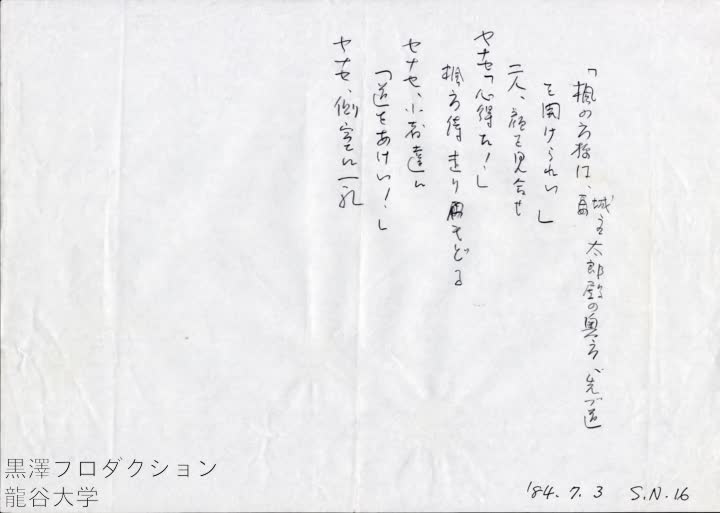 「楓の方様は、城主太郎殿の奥方が先づ道
を開けられい」
二人、顔を見合せ
ヤナセ「心得た!」
楓方侍 走りもどる
ヤナセ、小者達に
「道をあけい!」
ヤナセ、側室に一礼
'84.7.3 S.N.16
黒澤プロダクション
龍谷大学